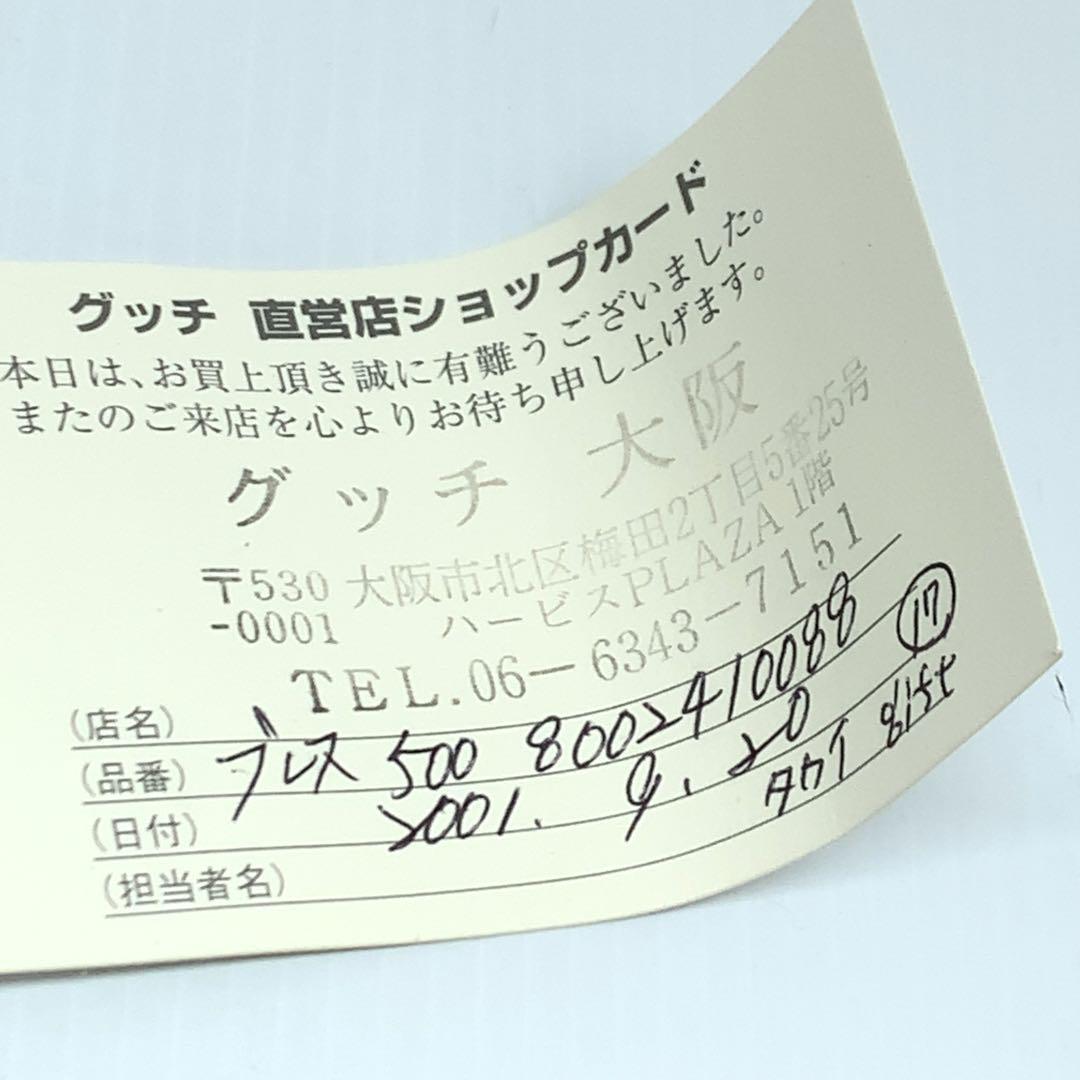 グッチ 直営店ショップカード
本日は、お買上頂き誠に有難うございました。
またのご来店を心よりお待ち申し上げます。
グッチ 大阪
〒530-0001 大阪市北区梅田2丁目5番25号
ハービスPLAZA 1階
TEL.06-6343-7151
(店名)
(品番) ブレス 500 8002410088 17
(日付) 2001. 9. 20
(担当者名)